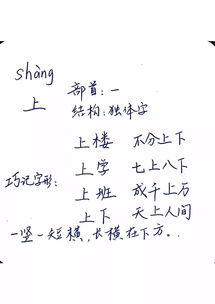 shàng
部首:一
上
结构:独体字
上楼 不分上下
上学 七上八下
巧记字形:
上班 成千上万
上下 天上人间
一竖一短横,长横在下方。